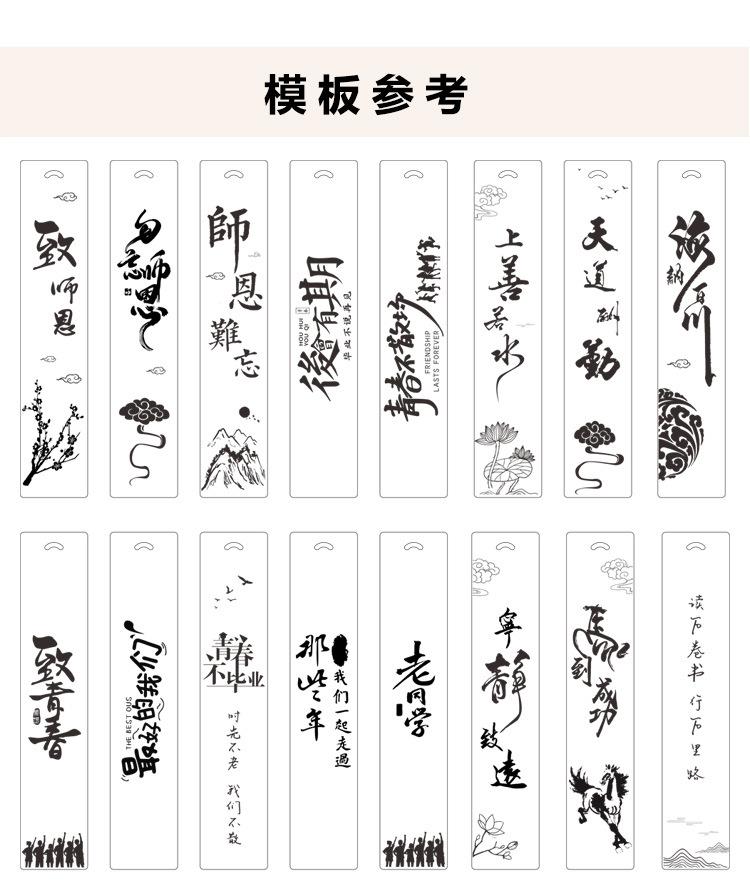 模板参考
致师恩
勿忘师恩
師恩難忘
後會有期
YOU HUI
YOU QI
毕业不说再见
青春不散场
FRIENDSHIP
LASTS FOREVER
上善若水
天道酬勤
海納百川
致青春
最好的我们
THE BEST OUS
青春不毕业
时光不老 我们不散
那些年
我们一起走過
老同学
寧靜致遠
馬到成功
读万卷书 行万里路